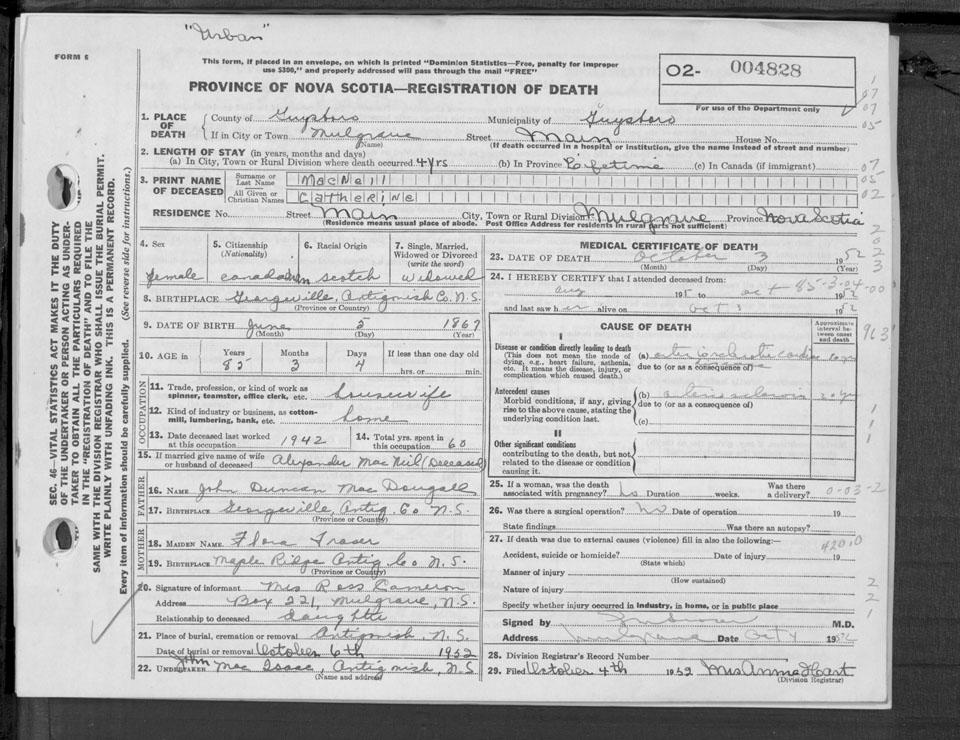 "Urban"
FORM 6
This form, if placed in an envelope, on which is printed "Dominion Statistics—Free, penalty for improper
use $300," and properly addressed will pass through the mail "FREE"
02- 004828
PROVINCE OF NOVA SCOTIA—REGISTRATION OF DEATH
For use of the Department only
1. PLACE OF DEATH County of Guysboro Municipality of Guysboro
If in City or Town Mulgrave Street Main House No.
(Name) (If death occurred in a hospital or institution, give the name instead of street and number)
2. LENGTH OF STAY (in years, months and days)
(a) In City, Town or Rural Division where death occurred 4 yrs (b) In Province Lifetime (c) In Canada (if immigrant)
3. PRINT NAME OF DECEASED Surname or Last Name MacNeil
All Given or Christian Names CATHERINE
RESIDENCE No. Street Main City, Town or Rural Division Mulgrave Province Nova Scotia
(Residence means usual place of abode. Post Office Address for residents in rural parts not sufficient)
4. Sex 5. Citizenship (Nationality) 6. Racial Origin 7. Single, Married, Widowed or Divorced (write the word)
female canadian scotch widowed
8. BIRTHPLACE Georgeville, Antigonish Co. N.S.
(Province or Country)
9. DATE OF BIRTH June 5 1867
(Month) (Day) (Year)
10. AGE in Years Months Days If less than one day old
85 3 4 hrs. or min.
OCCUPATION
11. Trade, profession, or kind of work as spinner, teamster, office clerk, etc. housewife
12. Kind of industry or business, as cotton-mill, lumbering, bank, etc. home
13. Date deceased last worked at this occupation 1942 14. Total yrs. spent in this occupation 60
15. If married give name of wife or husband of deceased Alexander MacNeil (Deceased)
FATHER
16. NAME John Duncan MacDougall
17. BIRTHPLACE Georgeville, Antig. Co N.S.
(Province or Country)
MOTHER
18. MAIDEN NAME Flora Fraser
19. BIRTHPLACE Maple Ridge Antig. Co N.S.
(Province or Country)
20. Signature of informant Mrs Ross Cameron
Address Box 221, Mulgrave, N.S.
Relationship to deceased daughter
21. Place of burial, cremation or removal Antigonish, N.S.
Date of burial or removal October 6th 1952
22. UNDERTAKER John MacIsaac, Antigonish, N.S
(Name and address)
MEDICAL CERTIFICATE OF DEATH
23. DATE OF DEATH October 3 1952
(Month) (Day) (Year)
24. I HEREBY CERTIFY that I attended deceased from:
Aug 195 to Oct 1952
85-3-04-00
and last saw her alive on Oct 1952
CAUSE OF DEATH
Approximate interval between onset and death
I
Disease or condition directly leading to death
(This does not mean the mode of dying, e.g., heart failure, asthenia, etc. It means the disease, injury, or complication which caused death.)
(a)
due to (or as a consequence of)
Antecedent causes
Morbid conditions, if any, giving rise to the above cause, stating the underlying condition last.
(b)
due to (or as a consequence of)
(c)
II
Other significant conditions
contributing to the death, but not related to the disease or condition causing it.
25. If a woman, was the death associated with pregnancy? No Duration weeks. Was there a delivery?
0-03-2
26. Was there a surgical operation? No Date of operation 19
State findings Was there an autopsy?
27. If death was due to external causes (violence) fill in also the following:—
420.0
Accident, suicide or homicide? Date of injury 19
(State which)
Manner of injury
(How sustained)
Nature of injury
Specify whether injury occurred in industry, in home, or in public place
Signed by M.D.
Address Mulgrave Date Oct 4 1952
28. Division Registrar's Record Number
29. Filed October 4th 1952 Mrs Annie Hart
(Division Registrar)
SEC. 46—VITAL STATISTICS ACT MAKES IT THE DUTY
OF THE UNDERTAKER OR PERSON ACTING AS UNDER-
TAKER TO OBTAIN ALL THE PARTICULARS REQUIRED
IN THE "REGISTRATION OF DEATH" AND TO FILE THE
SAME WITH THE DIVISION REGISTRAR WHO SHALL ISSUE THE BURIAL PERMIT.
WRITE PLAINLY WITH UNFADING INK. THIS IS A PERMANENT RECORD.
Every item of information should be carefully supplied. (See reverse side for instructions.)